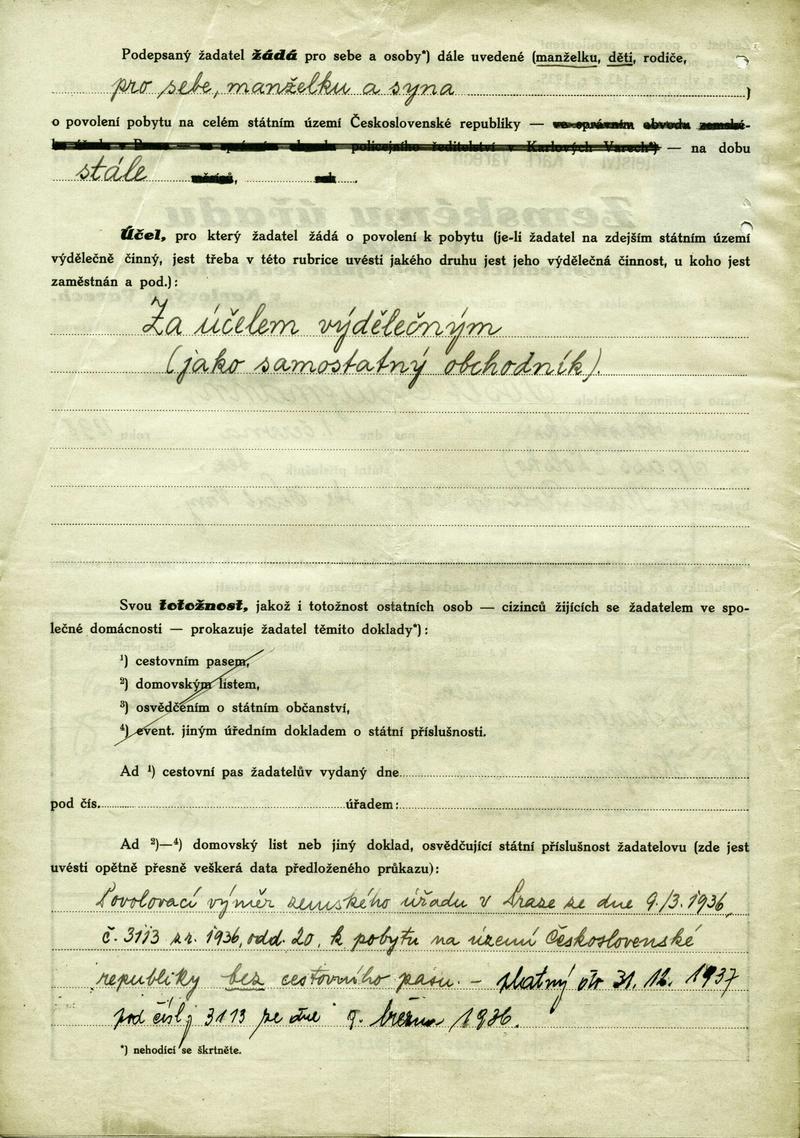 Podepsaný žadatel žádá pro sebe a osoby*) dále uvedené (manželku, děti, rodiče,
pro sebe, manželku a syna )
o povolení pobytu na celém státním území Československé republiky — ve správním obvodu zemské-
ho úřadu v Praze — ve správním obvodu policejního ředitelství v Karlových Varech*) — na dobu
stále měsíců, rok
Účel, pro který žadatel žádá o povolení k pobytu (je-li žadatel na zdejším státním území
výdělečně činný, jest třeba v této rubrice uvésti jakého druhu jest jeho výdělečná činnost, u koho jest
zaměstnán a pod.):
Za účelem výdělečným
(jako samostatný obchodník).
Svou totožnost, jakož i totožnost ostatních osob — cizinců žijících se žadatelem ve spo-
lečné domácnosti — prokazuje žadatel těmito doklady*):
¹) cestovním pasem,
²) domovským listem,
³) osvědčením o státním občanství,
⁴) event. jiným úředním dokladem o státní příslušnosti.
Ad ¹) cestovní pas žadatelův vydaný dne
pod čís. úřadem:
Ad ²)—⁴) domovský list neb jiný doklad, osvědčující státní příslušnost žadatelovu (zde jest
uvésti opětně přesně veškerá data předloženého průkazu):
Povolovací výměr zemského úřadu v Praze ze dne 9./3. 1936,
č. 3113 z r. 1936, odd. 20, k pobytu na území Československé
republiky bez cestovního pasu. – platný do 31. 12. 1937
pod číslj 3113 ze dne 9. března 1936.
*) nehodící se škrtněte.